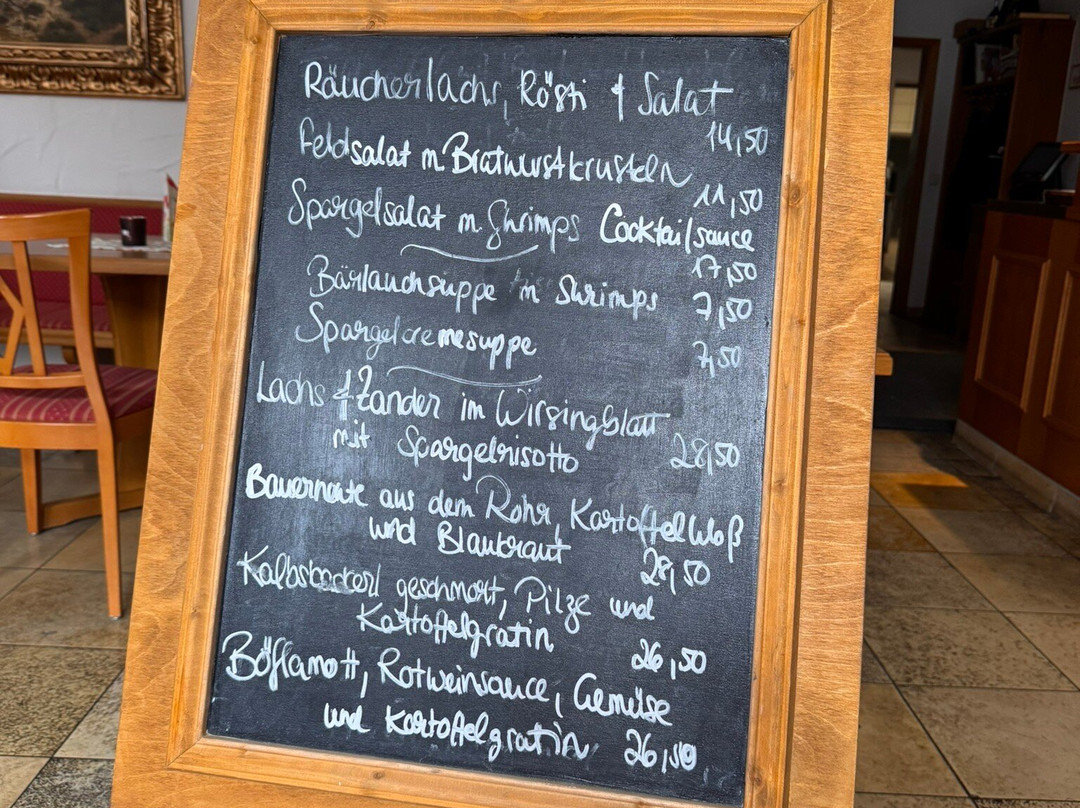 Räucherlachs, Rösti & Salat
14,50
Feldsalat m Bratwurstkrusteln
11,50
Spargelsalat m Shrimps Cocktailsauce
17,50
Bärlauchsuppe m Shrimps 7,50
Spargelcremesuppe 7,50
Lachs & Zander im Wirsingblatt
mit Spargelrisotto 28,50
Bauernente aus dem Rohr, Kartoffelkloß
und Blaukraut 28,50
Kalbsbackerl geschmort, Pilze und
Kartoffelgratin 26,50
Böfflamott, Rotweinsauce, Gemüse
und Kartoffelgratin 26,50